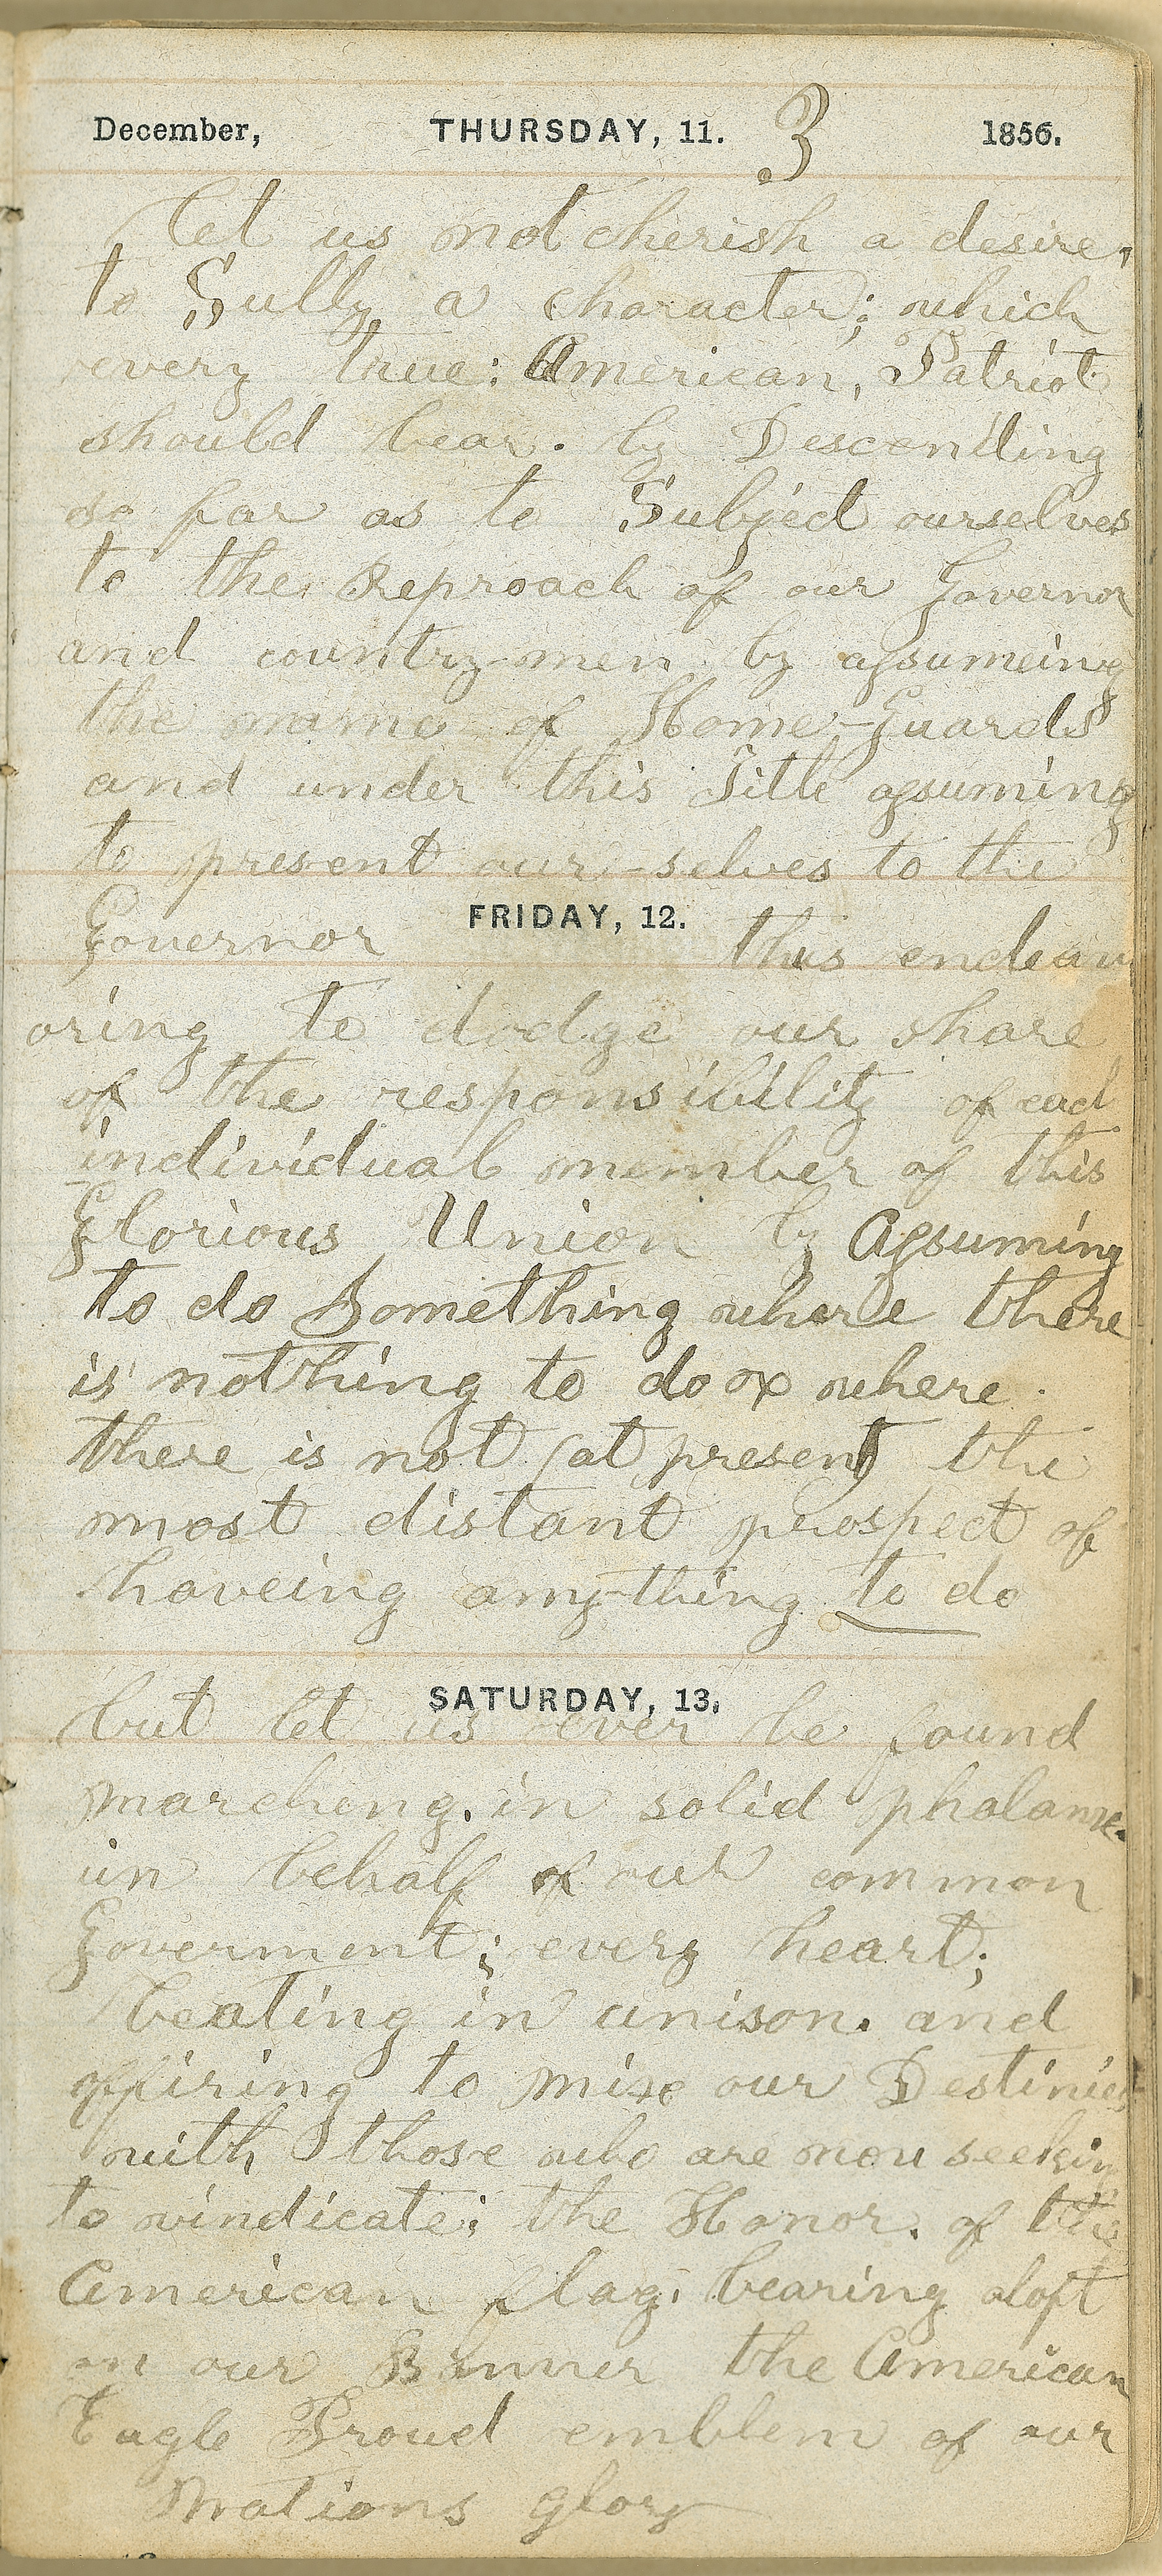 December, THURSDAY, 11. 3 1856.
Let us not cherish a desire,
to Sully a character; which
every true: American, Patriot
should bear. by Descending
so far as to Subject ourselves
to the Reproach of our Governor
and country-men by assumeing
the name of Home-Guards
and under this Title assuming
to present our-selves to the
FRIDAY, 12.
Governor thus endeav
oring to dodge our share
of the responsibility of each
individual member of this
Glorious Union by Assuming
to do Something where there
is nothing to do or where
there is not (at present) the
most distant prospect of
haveing any-thing to do
SATURDAY, 13.
but let us ever be found
marching. in solid
in behalf of our common
Goverment; every heart;
beating in unison. and
offiring to mix our Destinies
with those who are now seeking
to vindicate; the Honor. of the
American flag. bearing aloft
on our Banner the American
Eagle Proud emblem of our
Nations glory